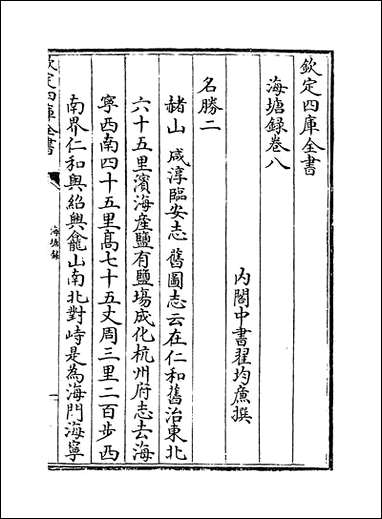 欽定四庫全書
海塘録卷八
内閣中書翟均亷撰
名勝二
赭山 咸淳臨安志舊圖志云在仁和舊治東北
六十五里濱海産鹽有鹽場成化杭州府志去海
寧西南四十五里髙七十五丈周三里二百步西
南界仁和與紹興龕山南北對峙是為海門海寧
欽定四庫全書
海塘録
一